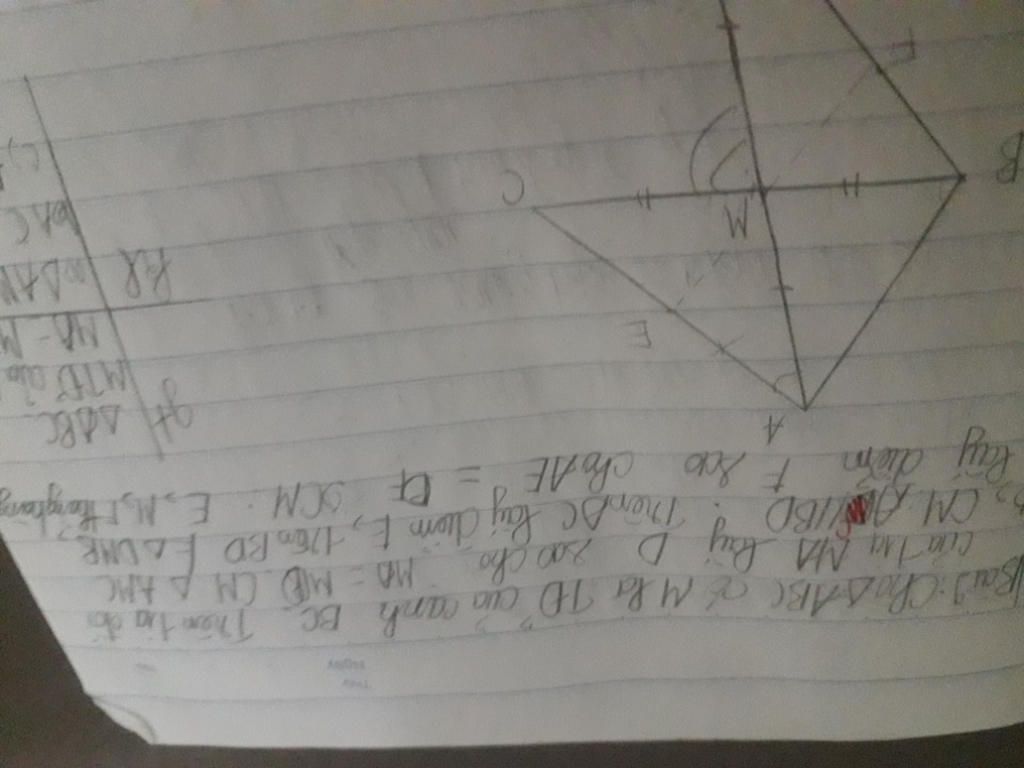 Bài 3. Cho ΔABC có M là TĐ của cạnh BC. Trên tia đối
của tia MA lấy D sao cho MA = MD. CM ΔAMC = ΔDMB
b, CM AC//BD. Trên AC lấy điểm E, trên BD
lấy điểm F sao cho AE = DF. CM: E, M, F thẳng hàng
A
E
M
C
B
F
gt
ΔABC
MTĐ của
MA = M
KL
ΔAM
AC